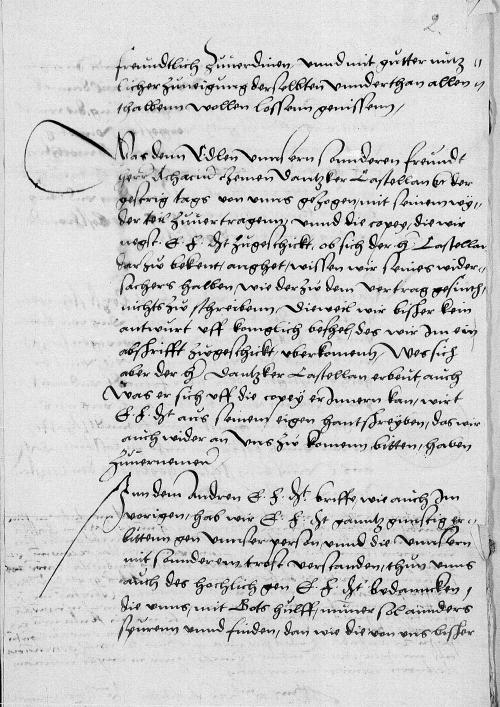 2
freundtlich zuuerdinen, vnnd mit gutter nutz
licher zuneigung derselbten vnnderthan allen
thalbenn wollen lossenn genissenn,
Was denn Edlen vnnsern sonnderen freundt
Achacium Dantzker Castellan der
gestrig tags von vnns getzogen, mit seinem wy
der teil zuuertragenn, vnnd die copey, die wir
negst E F Dt zugeschickt, ob sich der h Castellan
darzw bekent, anghet, wissen wir seines wider
sachers halben, wie der zw dem vertrag gesint,
nichts zw schreibenn, Dieweil wir bisher kein
antwurt vff koniglich beuhel, des wir im ein
abschrifft zugeschickt vberkomenn, Wes sich
aber der h Dantzker Castellan erbeut auch
Was er sich vff die copey erinnern kan, wirt
E F Dt aus seinem eigen hantschreyben, das wir
auch wider an vns zw komenn bitten, haben
zuuernemen
Inn dem Andren E F Dt briffe, wie auch im
vorigen, hab wir E F Dt gantz gunstig er
bittenn gen vnnser person vnnd die vnnsern
mit sonnderem trost verstanden, thun vnns
auch des hochlich gen E F Dt bedanncken,
die vnns, mit Gots hulff, nimer sol annders
spurenn vnnd finden, dan wie die von vns bisher